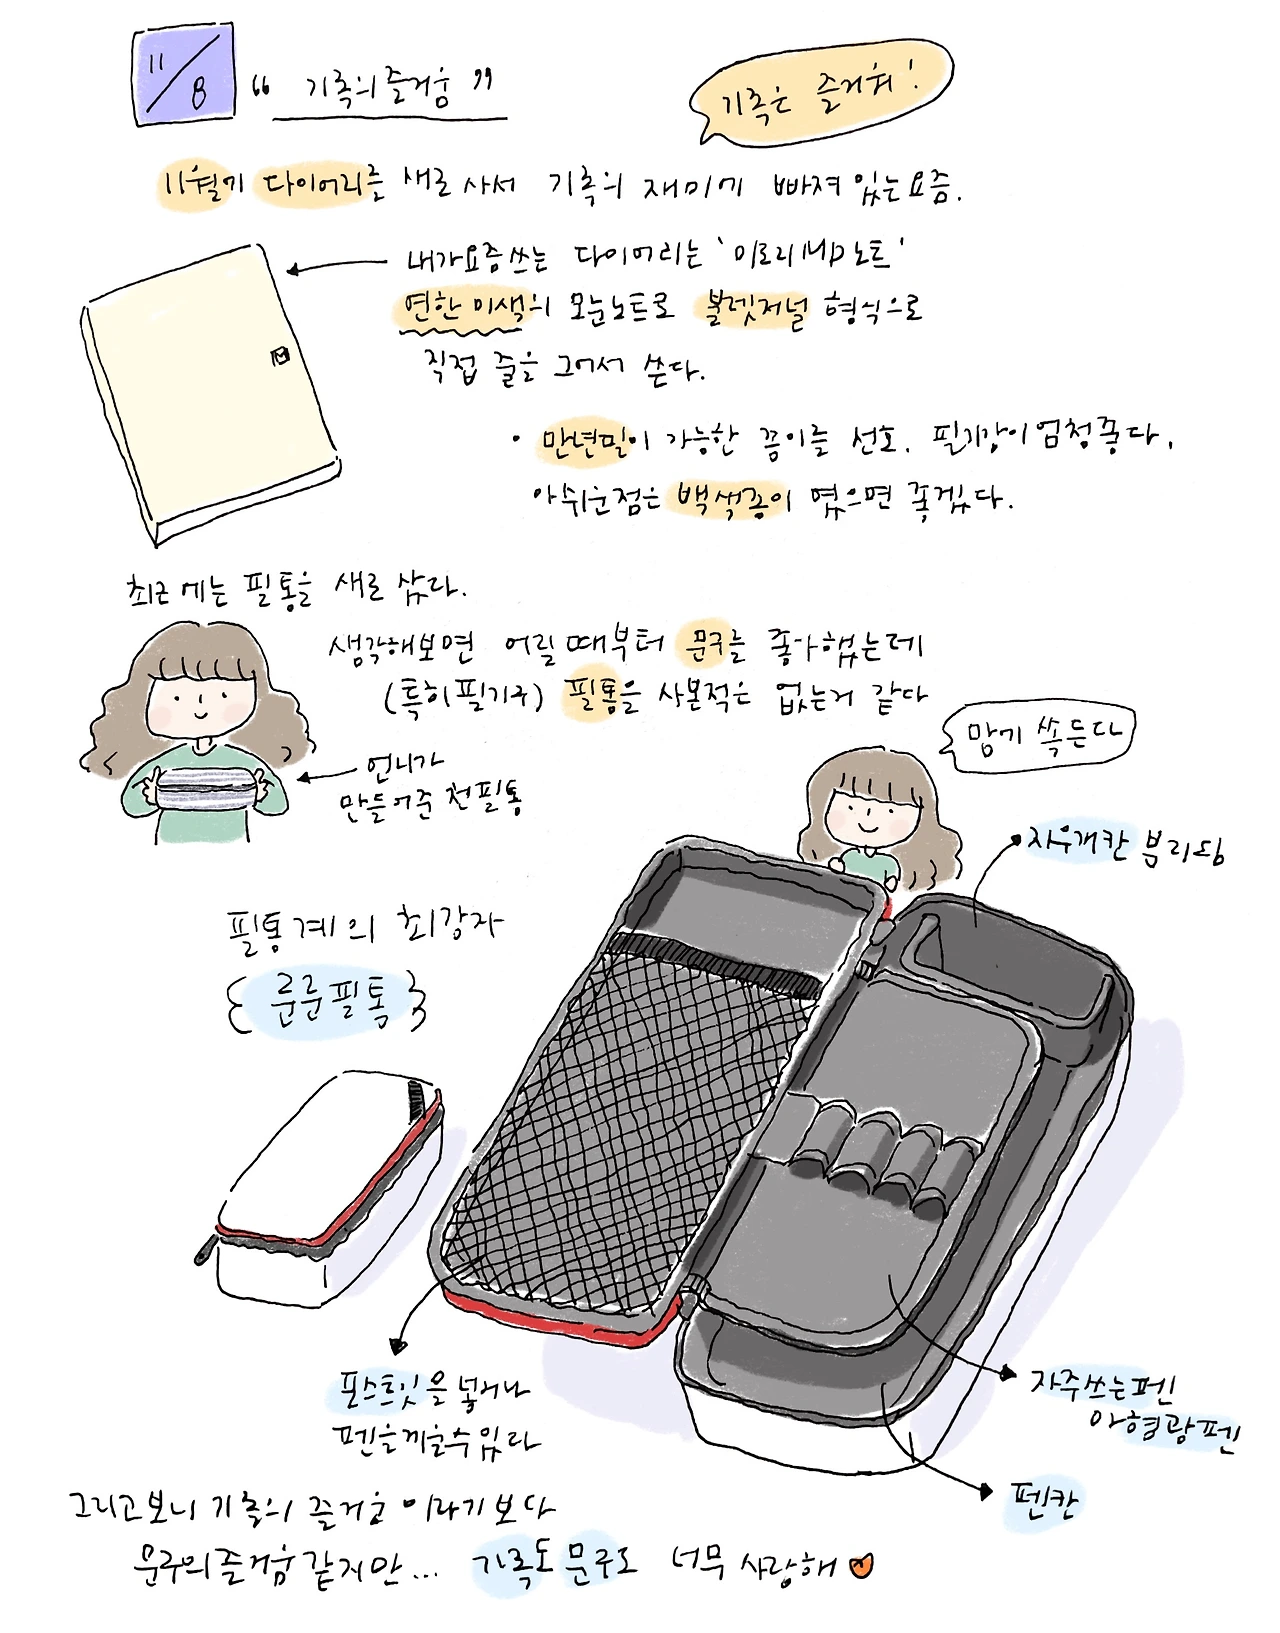 11/8 " 기록의 즐거움 "
기록은 즐거워!
11월기 다이어리를 새로 사서 기록의 재미에 빠져 있는 요즘.
내가 요즘 쓰는 다이어리는 '미도리 MD노트'
연한 미색의 모눈노트로 불렛저널 형식으로
직접 줄을 그어서 쓴다.
• 만년필이 가능한 종이를 선호. 필기감이 엄청좋다.
아쉬운점은 백색종이 였으면 좋겠다.
최근에는 필통을 새로 샀다.
생각해보면 어릴때부터 문구를 좋아했는데
(특히 필기구) 필통을 사본적은 없는거 같다
언니가
만들어준 천필통
맘에 쏙든다
지우개칸 분리됨
필통계의 최강자
{ 룬룬필통 }
포스트잇을 넣거나
펜을 끼울수있다
자주쓰는펜
아 형광펜
펜칸
그리고보니 기록의 즐거움 이라기보다
문구의 즐거움 같지만... 기록도 문구도 너무 사랑해